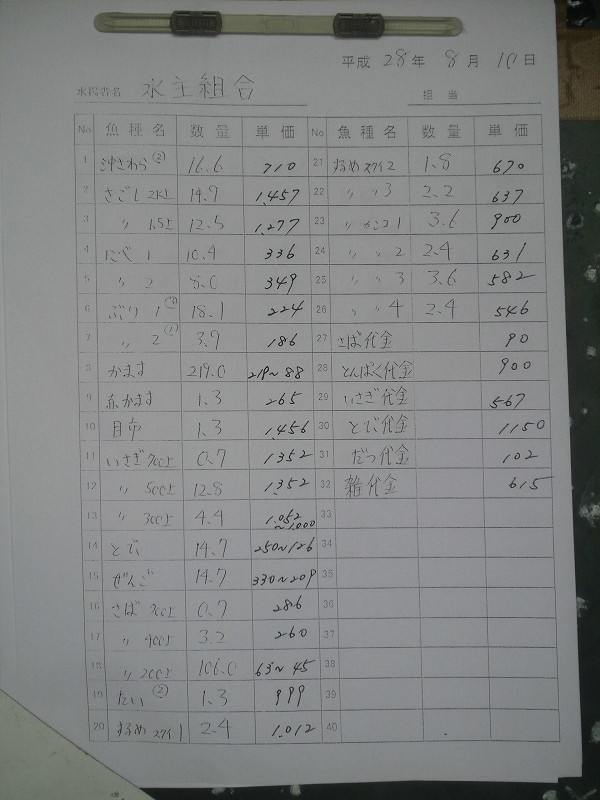 平成 28年 8月 10日
水揚者名 水主組合 担当
No 魚種名 数量 単価 No 魚種名 数量 単価
1 沖さわら② 16.6 710 21 するめスワイ2 1.8 670
2 さごし2K上 14.7 1,457 22 〃 〃3 2.2 637
3 〃 1.5上 12.5 1,277 23 〃 1 3.6 900
4 にべ 1 10.4 336 24 〃 〃 2 2.4 631
5 〃 2 8.0 349 25 〃 〃 3 3.6 582
6 ぶり 1 18.1 224 26 〃 〃 4 2.4 546
7 〃 2 3.9 186 27 さば代金 90
8 かます 219.0 219~88 28 とんぱく代金 900
9 赤かます 1.3 265 29 いさぎ代金 567
10 目市 1.3 1,456 30 とび代金 1150
11 いさぎ700上 0.7 1352 31 だつ代金 102
12 〃 500上 12.8 1,352 32 雑代金 615
13 〃 300上 4.4 1,052~1,000 33
14 とび 14.7 250~126 34
15 ぜんご 14.7 330~209 35
16 さば 700上 0.7 286 36
17 〃 400上 3.2 260 37
18 〃 200上 106.0 63~45 38
19 たい② 1.3 999 39
20 するめスワイ1 2.4 1,012 40